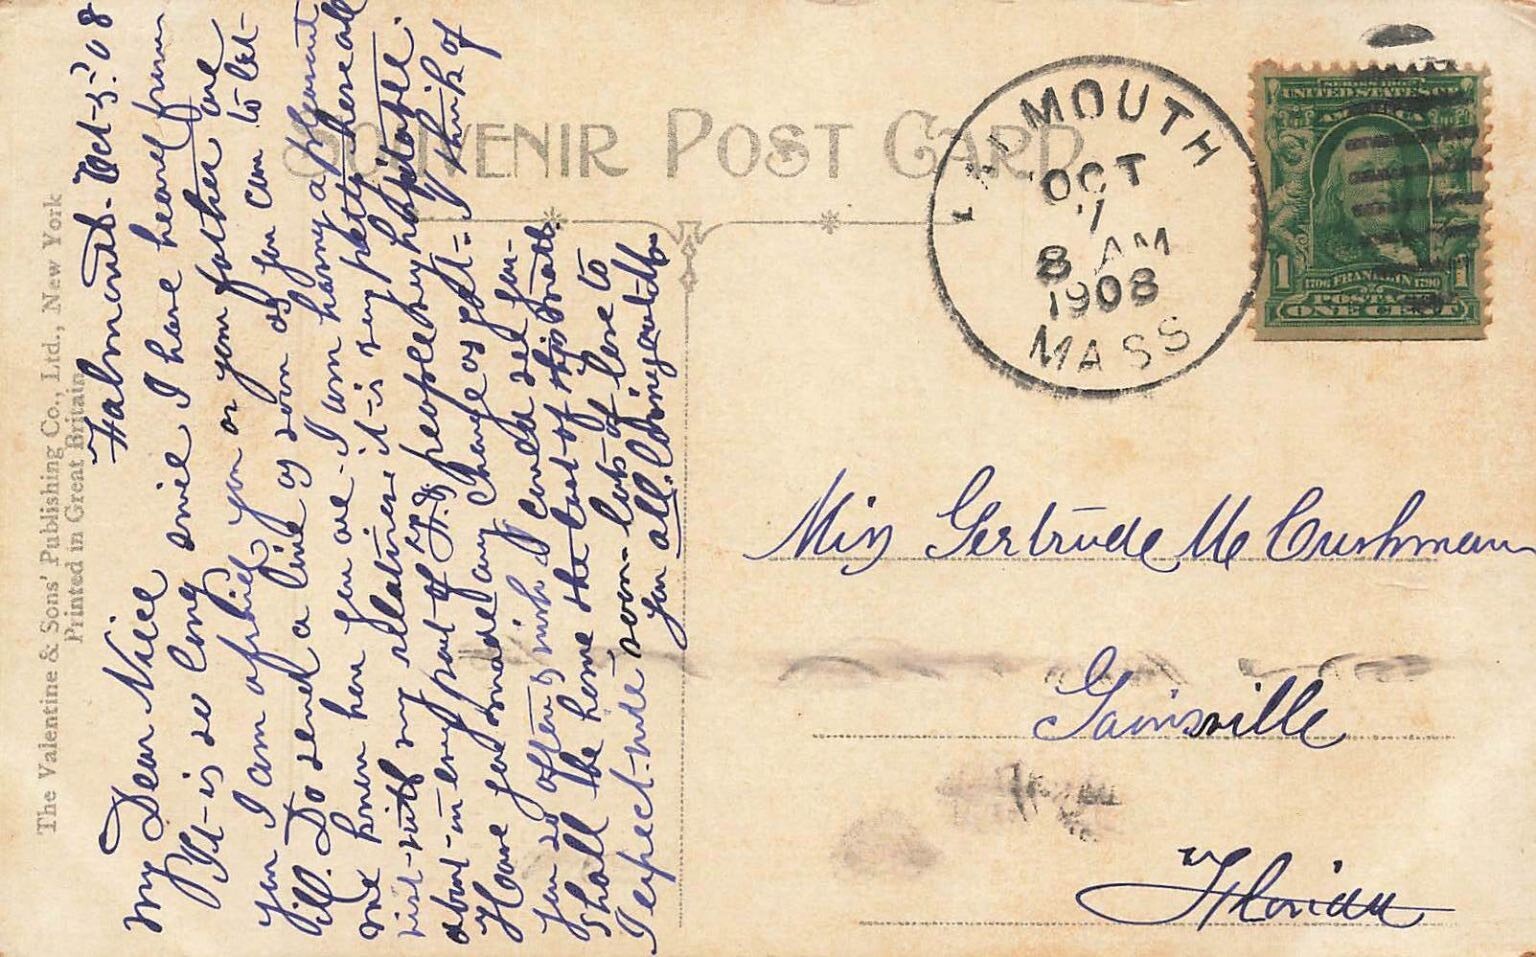 The Valentine & Sons' Publishing Co., Ltd., New York
Printed in Great Britain
SOUVENIR POST CARD
FALMOUTH
OCT
7
8 AM
1908
MASS
SERIES 1902
UNITED STATES OF
AMERICA
1 1706 FRANKLIN 1790 1
POSTAGE
ONE CENT
Falmouth - Oct - 5. '08
My Dear Niece
It - is so long since I have heard from
you I am afraid you or your father are
ill. Do send a line as soon as you can to let -
me know how you are - I am having a pleasant
visit - with my relatives it - is very pretty here all
about - in every part of it. people very hospitable.
Have you made any change as yet - I think of
you so often & wish I could see you -
Shall be home the last of this month
I expect - write soon - lots of love to
you all.
Miss Gertrude M Cushman
Gainsville
Florida